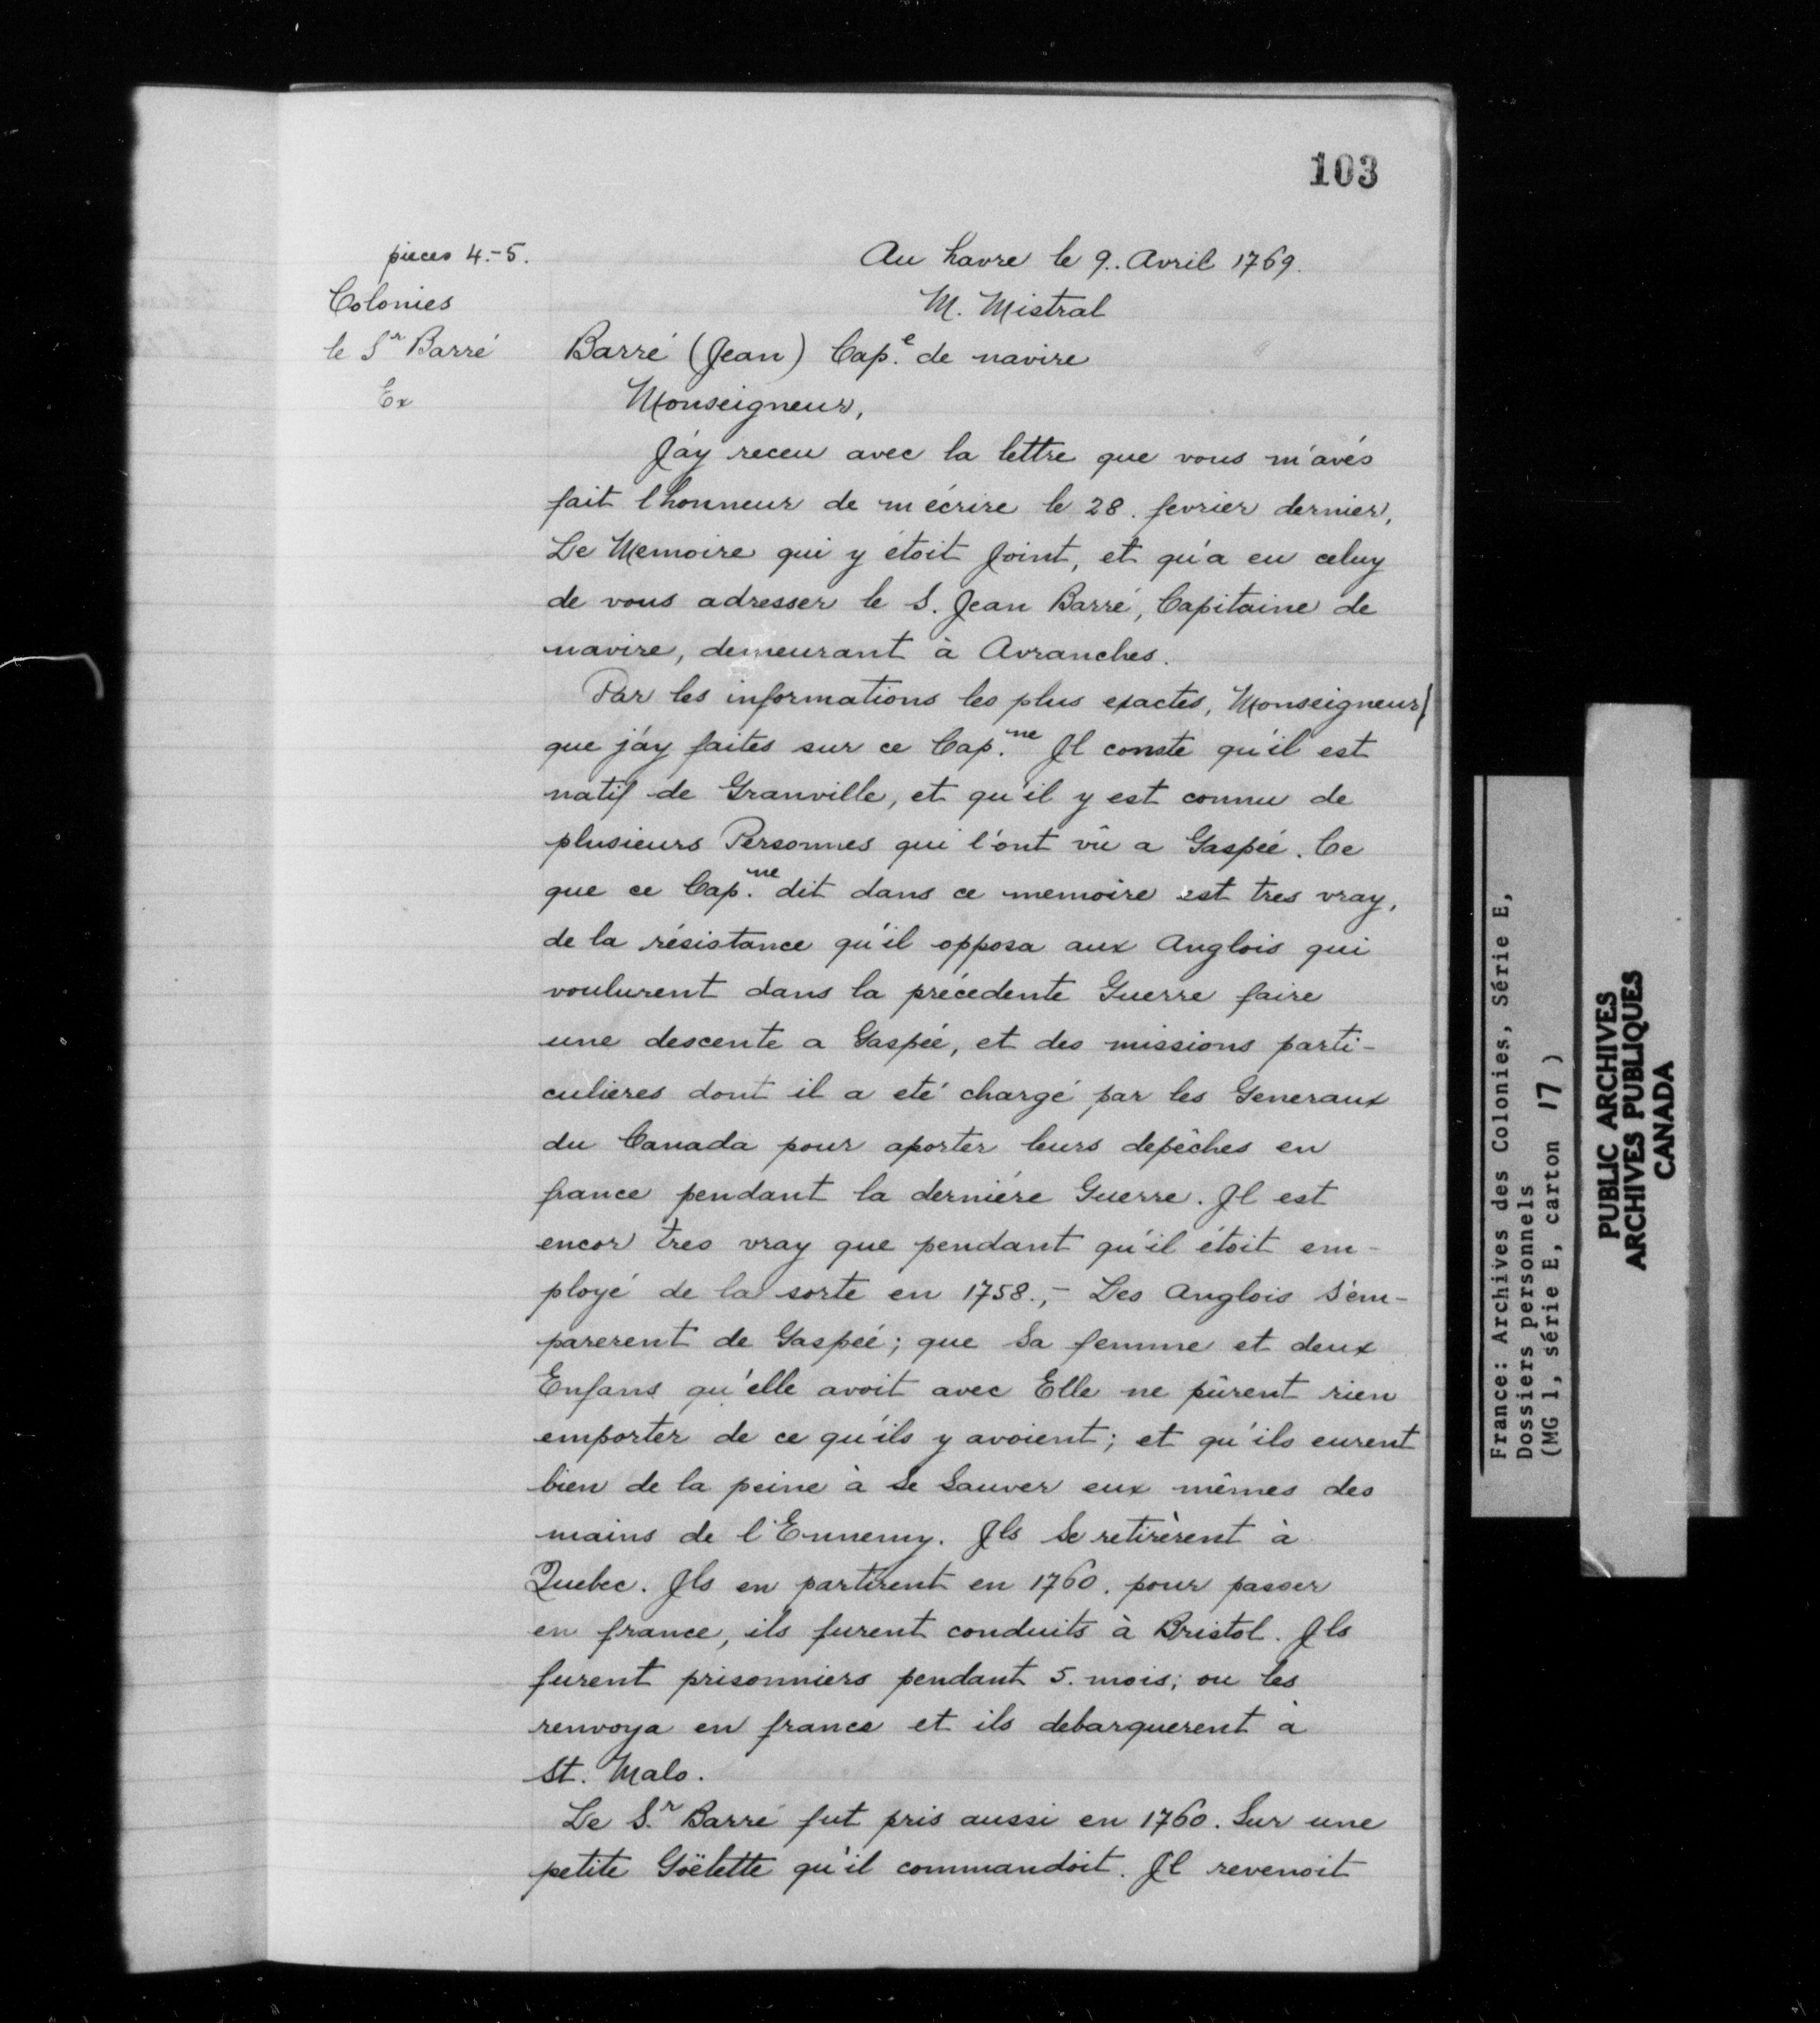 103
pieces 4.-5.
Au havre le 9. Avril 1769.
Colonies
M. Mistral
le Sr Barré
Barré (Jean) Cap.e de navire
Ex
Monseigneur,
J'ay receu avec la lettre que vous m'avés
fait l'honneur de m'écrire le 28. fevrier dernier,
Le Memoire qui y étoit Joint, et qu'a eu celuy
de vous adresser le S. Jean Barré, Capitaine de
navire, demeurant à Avranches.
Par les informations les plus exactes, Monseigneur,
que j'ay faites sur ce Cap.ne Il conste qu'il est
natif de Granville, et qu'il y est connu de
plusieurs Personnes qui l'ont vû a Gaspée. Ce
que ce Cap.ne dit dans ce memoire est tres vray,
de la résistance qu'il opposa aux Anglois qui
voulurent dans la précedente Guerre faire
une descente a Gaspée, et des missions parti-
culieres dont il a eté chargé par les Generaux
du Canada pour aporter leurs depêches en
france pendant la derniére Guerre. Il est
encor tres vray que pendant qu'il étoit em-
ployé de la sorte en 1758., - Les Anglois s'em-
parerent de Gaspée; que sa femme et deux
Enfans qu'elle avoit avec Elle ne pûrent rien
emporter de ce qu'ils y avoient; et qu'ils eurent
bien de la peine à se sauver eux mêmes des
mains de l'Ennemy. Ils se retirèrent à
Quebec. Ils en partirent en 1760. pour passer
en france, ils furent conduits à Bristol. Ils
furent prisonniers pendant 5. mois; ou les
renvoya en france et ils debarquerent à
St. Malo.
Le S.r Barré fut pris aussi en 1760. Sur une
petite Goëlette qu'il commandoit. Il revenoit
France: Archives des Colonies, Série E,
Dossiers personnels
(MG 1, série E, carton 17 )
PUBLIC ARCHIVES
ARCHIVES PUBLIQUES
CANADA